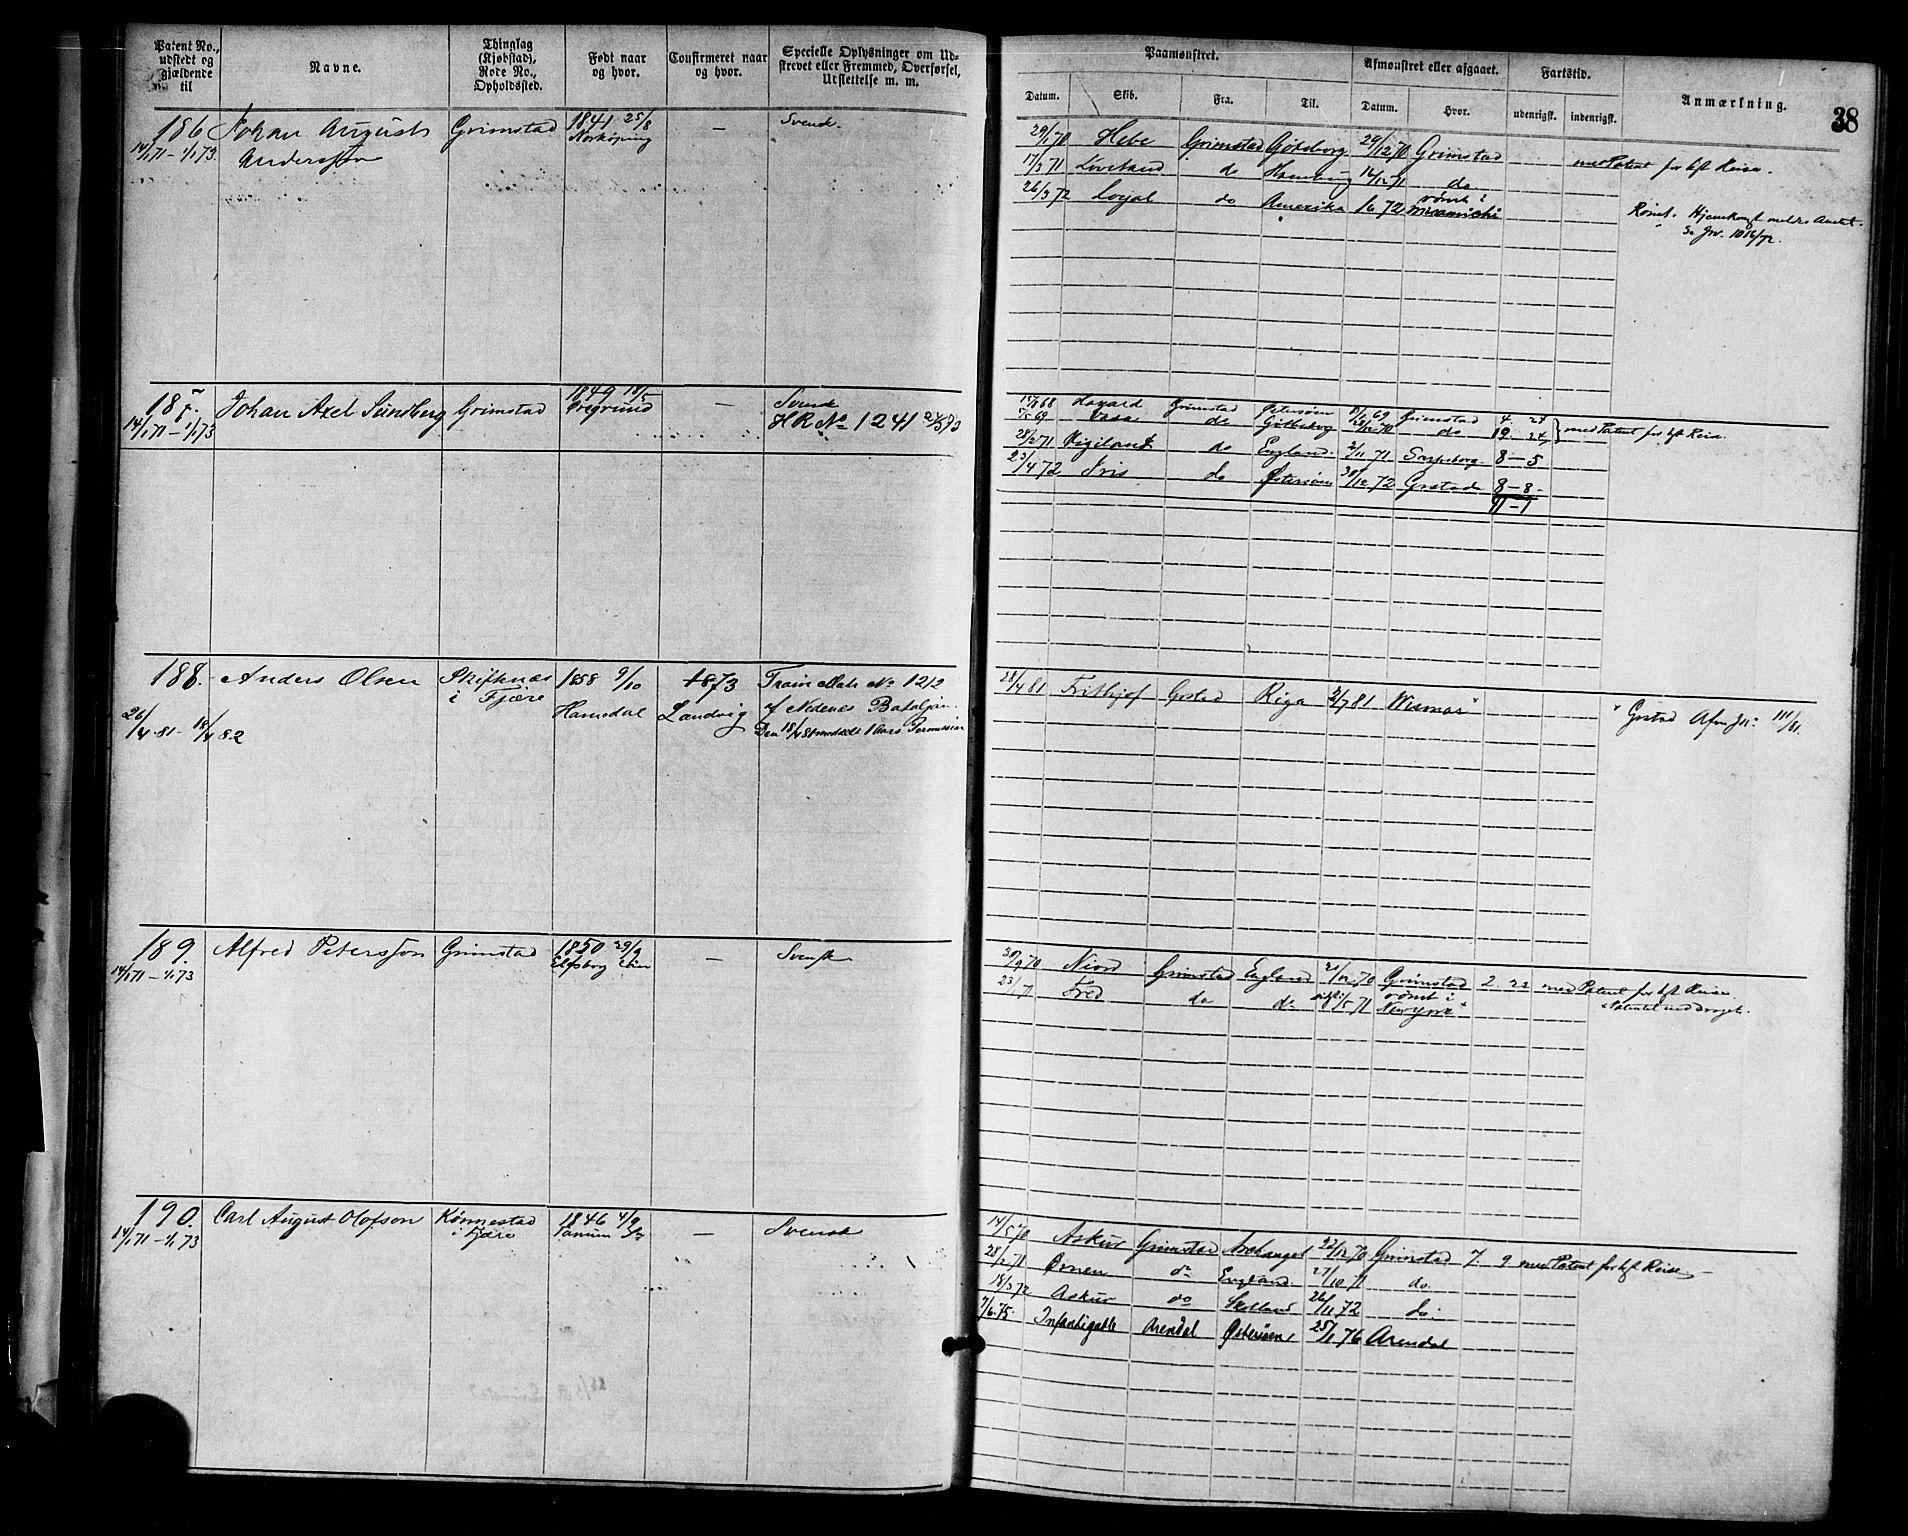 Patent No., udstedt og gjældende til
Navne.
Thinglag (Kjøbstad), Rode No., Opholdssted.
Født naar og hvor.
Confirmeret naar og hvor.
Specielle Oplysninger om Udskrevet eller Fremmed, Overførsel, Udslettelse m. m.
Paamønstret.
Afmønstret eller afgaaet.
Fartstid.
Anmærkning.
38
Datum.
Skib.
Fra.
Til.
Datum.
Hvor.
udenrigsk.
indenrigsk.
186 Johan August Grimstad 1841 25/8 — Svensk.
14/1 71 – 1/1 73. Andersson Norkøping
29/1 70 Hebe Grimstad Gøteborg 29/12 70 Grimstad med Patent for
17/3 71 Loveland do Hamburg 14/12 71 do
26/3 72 Loyal do Amerika 16 72 rømt i Miramichi Rømt.
187. Johan Axel Sundberg Grimstad 1849 18/5 — Svensk
14/1 71 – 1/1 73 Øregrund HR No 1241
68 Grimstad Østersøen 69 Grimstad 4 24
69 Vasa do Gøteborg 70 do 19 24 med Patent for
28/2 71 Vigiland do England. 2/11 71 Sarpsborg 8 – 5
23/4 72 Iris do Østersøen 30/12 72 Grstad 8 – 8
188. Anders Olsen Skiftenæs 1858 9/10 1873 Train No 1212
i Fjære Hamsdal Landvig af Nedenes Bataljon.
26/4 81 – 18/4 82 Den 18/4 81 1 Aars Permission
28/4 81 Frithjof Grstad Riga 2/7 81 Wismar Grstad Afm Jr: 111/81.
189. Alfred Petersson Grimstad 1850 29/9 — Svensk
14/1 71 – 1/1 73 Elfsborg
30/9 70 Niord Grimstad England 2/12 70 Grimstad 2 22 med Patent for
23/1 71 Fred do do 1/5 71 rømt i Newyork
190. Carl August Olofson Rønnestad 1846 4/9 — Svensk
14/1 71 – 1/1 73 i Fjære Tanum
14/5 70 Askur Grimstad Archangel 22/12 70 Grimstad 7. 9 med Patent for
28/2 71 Ørnen do England. 27/10 71 do.
18/3 72 Askur do Skotland 26/11 72 do.
7/6 75 Infatigable Arendal Østersøen 25/1 76 Arendal